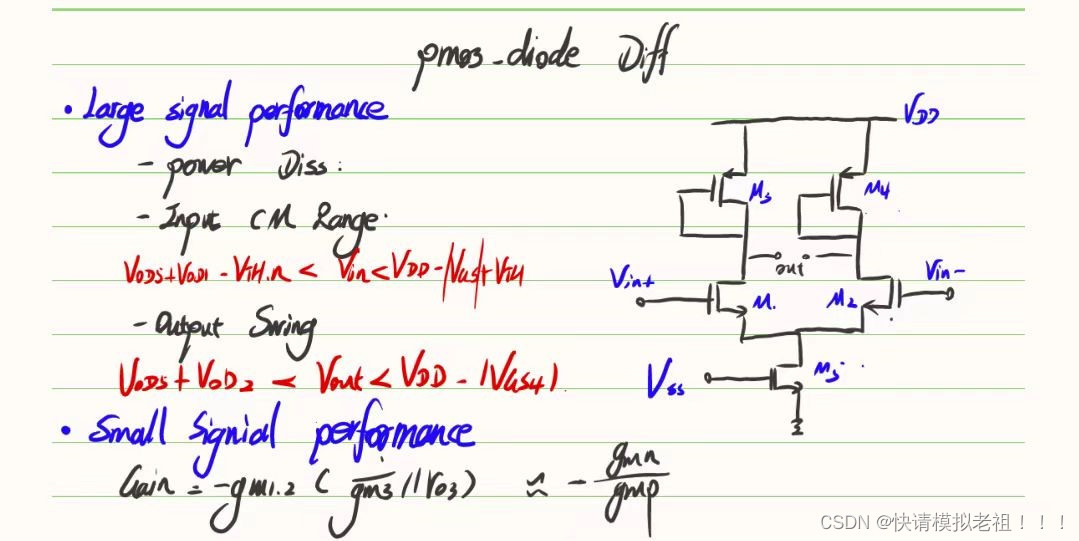 pmos-diode Diff
• Large signal performance
- power Diss:
- Input CM Range.
VODS+VOD1-VTH.n < Vin < VDD-|VGS|+VTH
- Output Swing
VODS+VOD2 < Vout < VDD-|VGS4|
• Small Signial performance
Gain = -gm1.2 ( 1/gm3 // ro3 ) ≈ - gmn/gmp
VDD
M3
M4
out
Vin+
Vin-
M1
M2
Vss
M5
CSDN @快请模拟老祖！！！